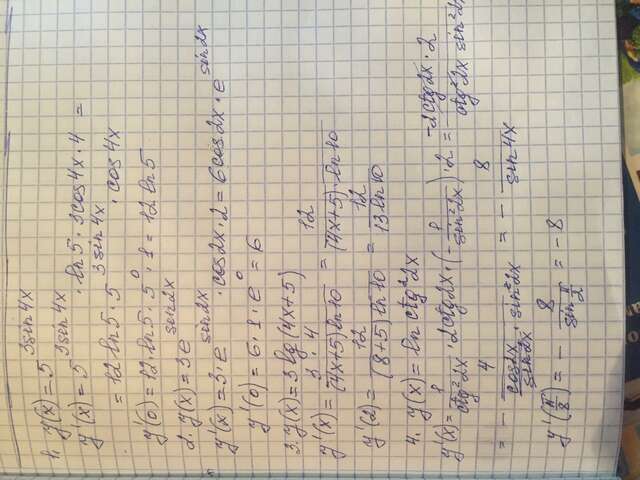 1. y(x) = 5^(3sin4x)
y'(x) = 5^(3sin4x) · ln5 · 3cos4x · 4 =
= 12 ln5 · 5^(3sin4x) · cos4x
y'(0) = 12 · ln5 · 5^0 · 1 = 12 ln5
2. y(x) = 3e^(sin2x)
y'(x) = 3 · e^(sin2x) · cos2x · 2 = 6cos2x · e^(sin2x)
y'(0) = 6 · 1 · e^0 = 6
3. y(x) = 3lg(4x+5)
y'(x) = 3 · 4 / (4x+5)ln10 = 12 / (4x+5) · ln10
y'(2) = 12 / (8+5)ln10 = 12 / 13ln10
4. y(x) = ln ctg²2x
y'(x) = 1 / ctg²2x · 2ctg2x · (- 1 / sin²2x) · 2 = -2ctg2x · 2 / ctg²2x sin²2x
= - 4 / cos2x / sin2x · sin²2x = - 8 / sin4x
y'(π/8) = - 8 / sin π/2 = -8